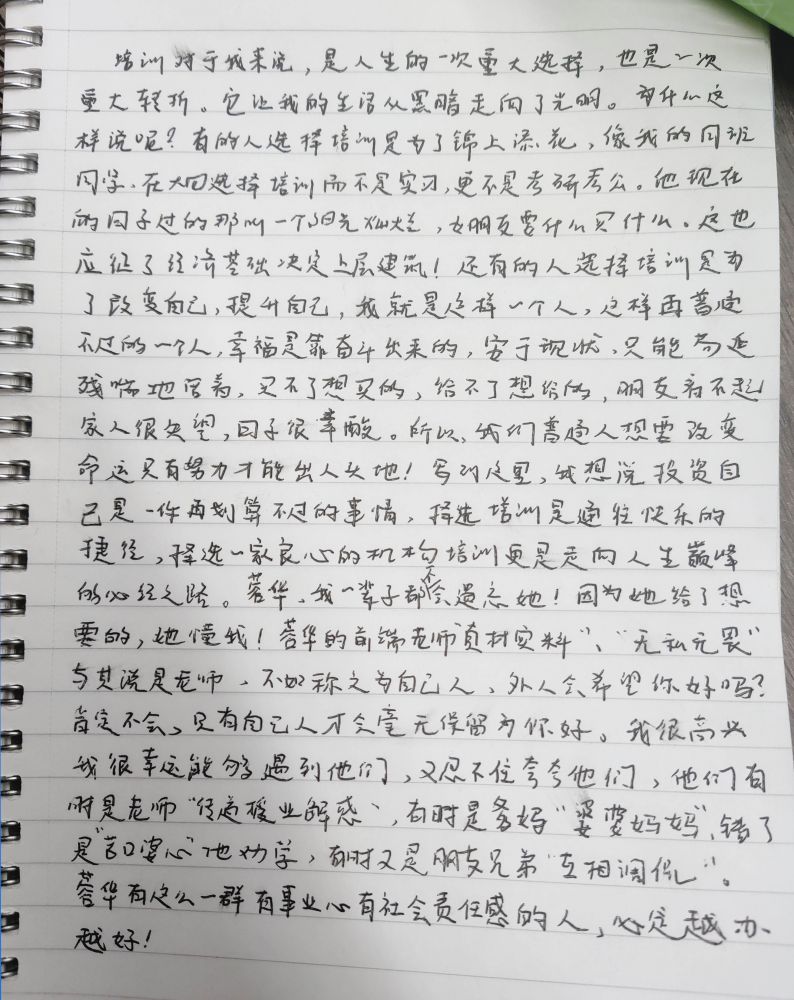 培训对于我来说，是人生的一次重大选择，也是一次
重大转折。它让我的生活从黑暗走向了光明。为什么这
样说呢？有的人选择培训是为了锦上添花，像我的同班
同学，在大四选择培训而不是实习，更不是考研考公。他现在
的日子过的那叫一个阳光灿烂，女朋友要什么买什么。这也
应征了经济基础决定上层建筑！还有的人选择培训是为
了改变自己，提升自己，我就是这样一个人，这样再普通
不过的一个人，幸福是靠奋斗出来的，安于现状，只能苟延
残喘地活着，买不了想买的，给不了想给的，朋友看不起，
家人很失望，日子很辛酸。所以，我们普通人想要改变
命运只有努力才能出人头地！写到这里，我想说投资自
己是一件再划算不过的事情，择选培训是通往快乐的
捷径，择选一家良心的机构培训更是走向人生巅峰
的必经之路。蓉华，我一辈子都不会遗忘她！因为她给了想
要的，她懂我！蓉华的前端老师"真材实料"、"无私无畏"
与其说是老师，不如称之为自己人，外人会希望你好吗？
肯定不会，只有自己人才会毫无保留为你好。我很高兴
我很幸运能够遇到他们，又忍不住夸夸他们，他们有
时是老师"传道授业解惑"，有时是爹妈"婆婆妈妈"，错了
是"苦口婆心"地劝学，有时又是朋友兄弟"互相调侃"。
蓉华有这么一群有事业心有社会责任感的人，必定越办
越好！